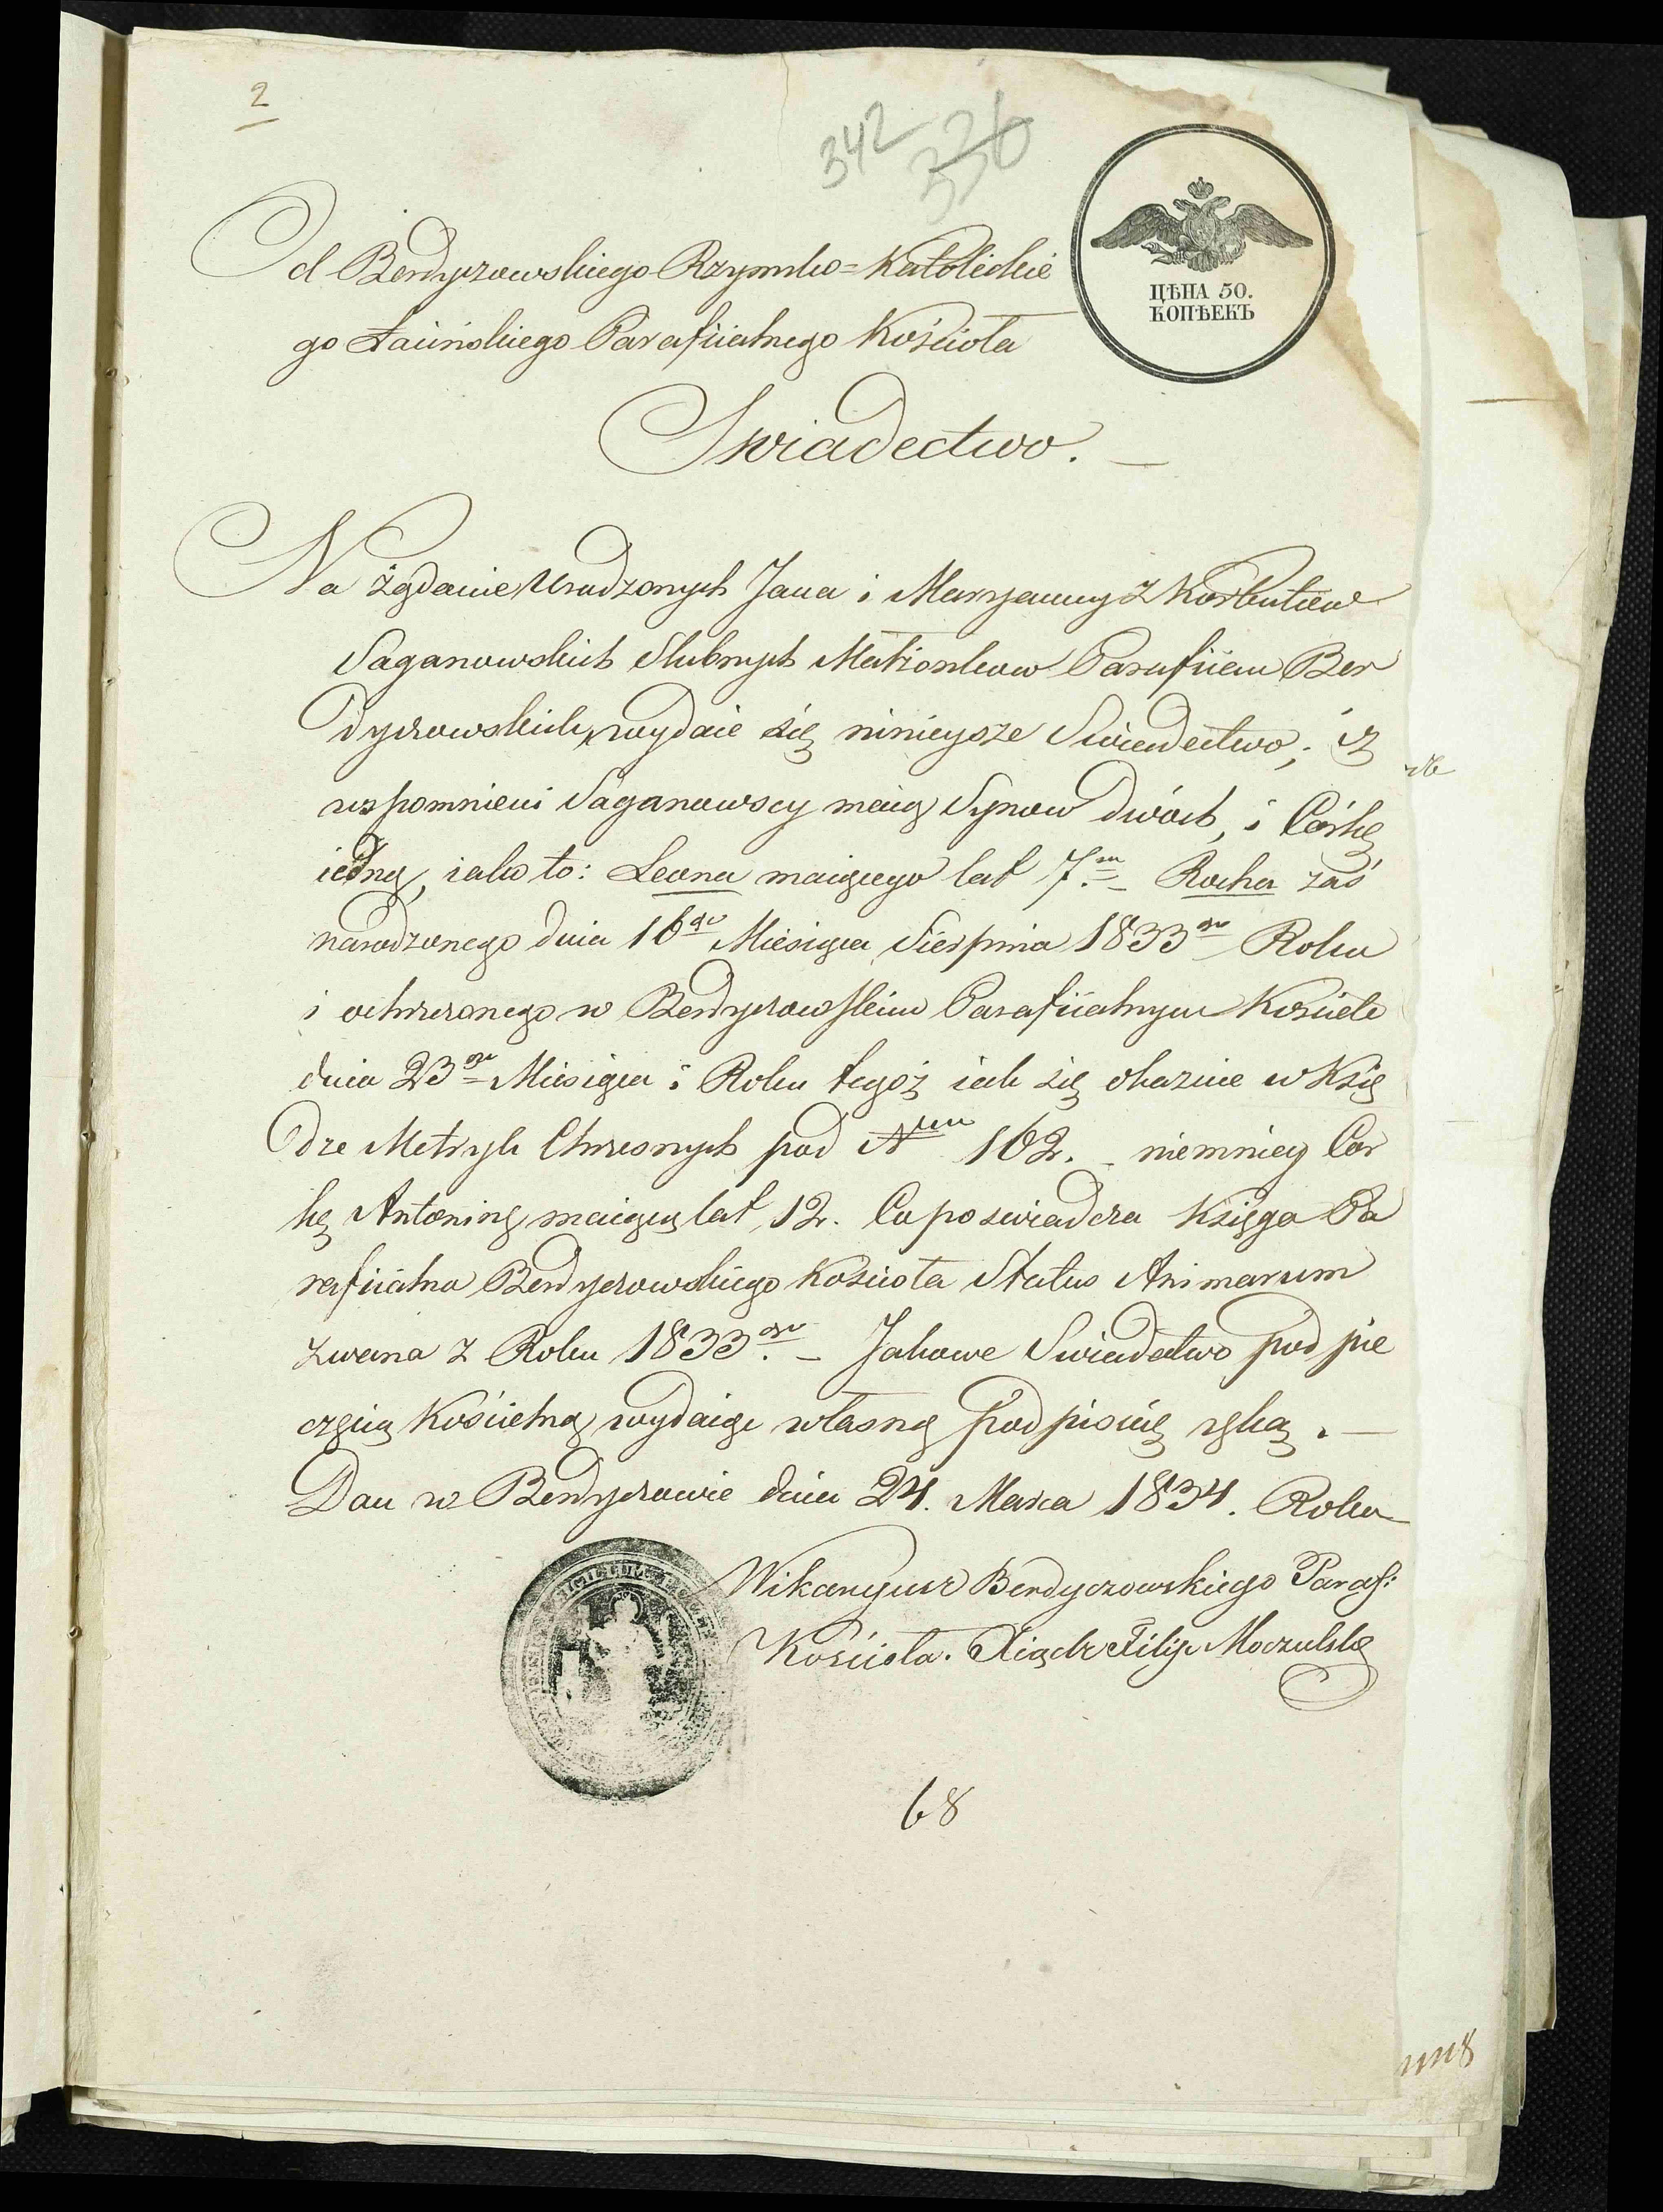 2
342 336
ЦѢНА 50.
КОПѢЕКЪ
Od Berdyczowskiego Rzymsko=Katolickie
go Łacińskiego Parafiialnego Kościoła
Swiadectwo.
Na żądanie Urodzonych Jana i Maryanny z Korbutow
Saganowskich Slubnych Małżonkow Parafiian Ber
dyczowskich, wydaie się ninieysze Swiadectwo; iż
wspomnieni Saganowscy maią Synow dwóch, i Córkę
iedną, iako to: Leona maiącego lat 7m. Rocha zaś
narodzonego dnia 16go Miesiąca Sierpnia 1833go Roku
i ochrzczonego w Berdyczowskim Parafiialnym Kościele
dnia 23go Miesiąca i Roku tegoż iak się okazuie w Księ
dze Metryk Chrzesnych pod Nrem 162. niemniey Cor
kę Antoninę maiącą lat 12. Co poswiadcza Księga Pa
rafiialna Berdyczowskiego Kościoła Status Animarum
zwana z Roku 1833go. Jakowe Swiadectwo pod pie
częcią Kościelną wydaiąc własną podpisuię ręką.
Dan w Berdyczowie dnia 24. Marca 1834. Roku
Wikaryusz Berdyczowskiego Paraf:
Kościoła. Xiądz Filip Moczulski
68